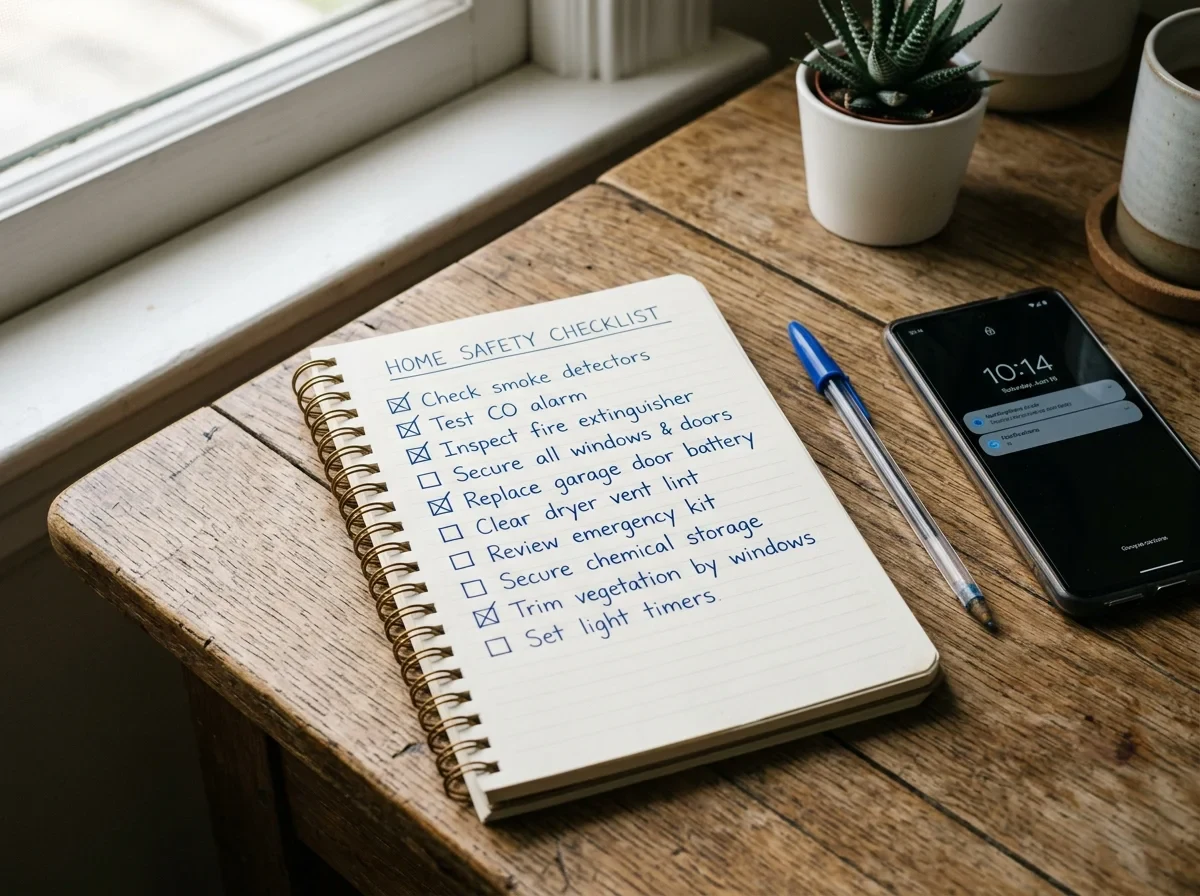 HOME SAFETY CHECKLIST
☒ Check smoke detectors
☒ Test CO alarm
☒ Inspect fire extinguisher
☐ Secure all windows & doors
☒ Replace garage door battery
☐ Clear dryer vent lint
☐ Review emergency kit
☐ Secure chemical storage
☒ Trim vegetation by windows
☐ Set light timers.
10:14